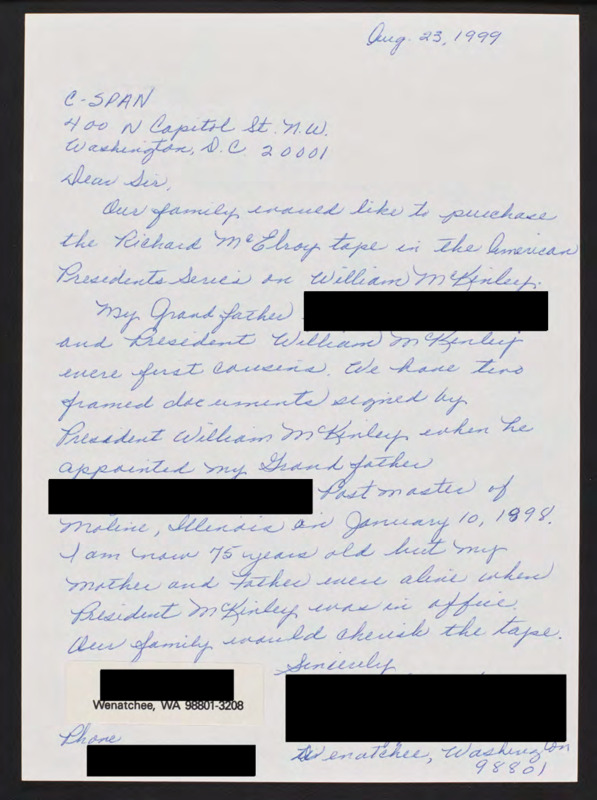 Aug. 23, 1999
C-SPAN
400 N Capitol St. N.W.
Washington, D.C. 20001
Dear Sir,
Our family would like to purchase
the Richard McElroy tape in the American
Presidents Series on William McKinley.
My Grandfather
and President William McKinley
were first cousins. We have two
framed documents signed by
President William McKinley when he
appointed my Grandfather
Postmaster of
Moline, Illinois on January 10, 1898.
I am now 75 years old but my
mother and Father were alive when
President McKinley was in office.
Our family would cherish the tape.
Sincerely
Wenatchee, WA 98801-3208
Phone
Wenatchee, Washington
98801